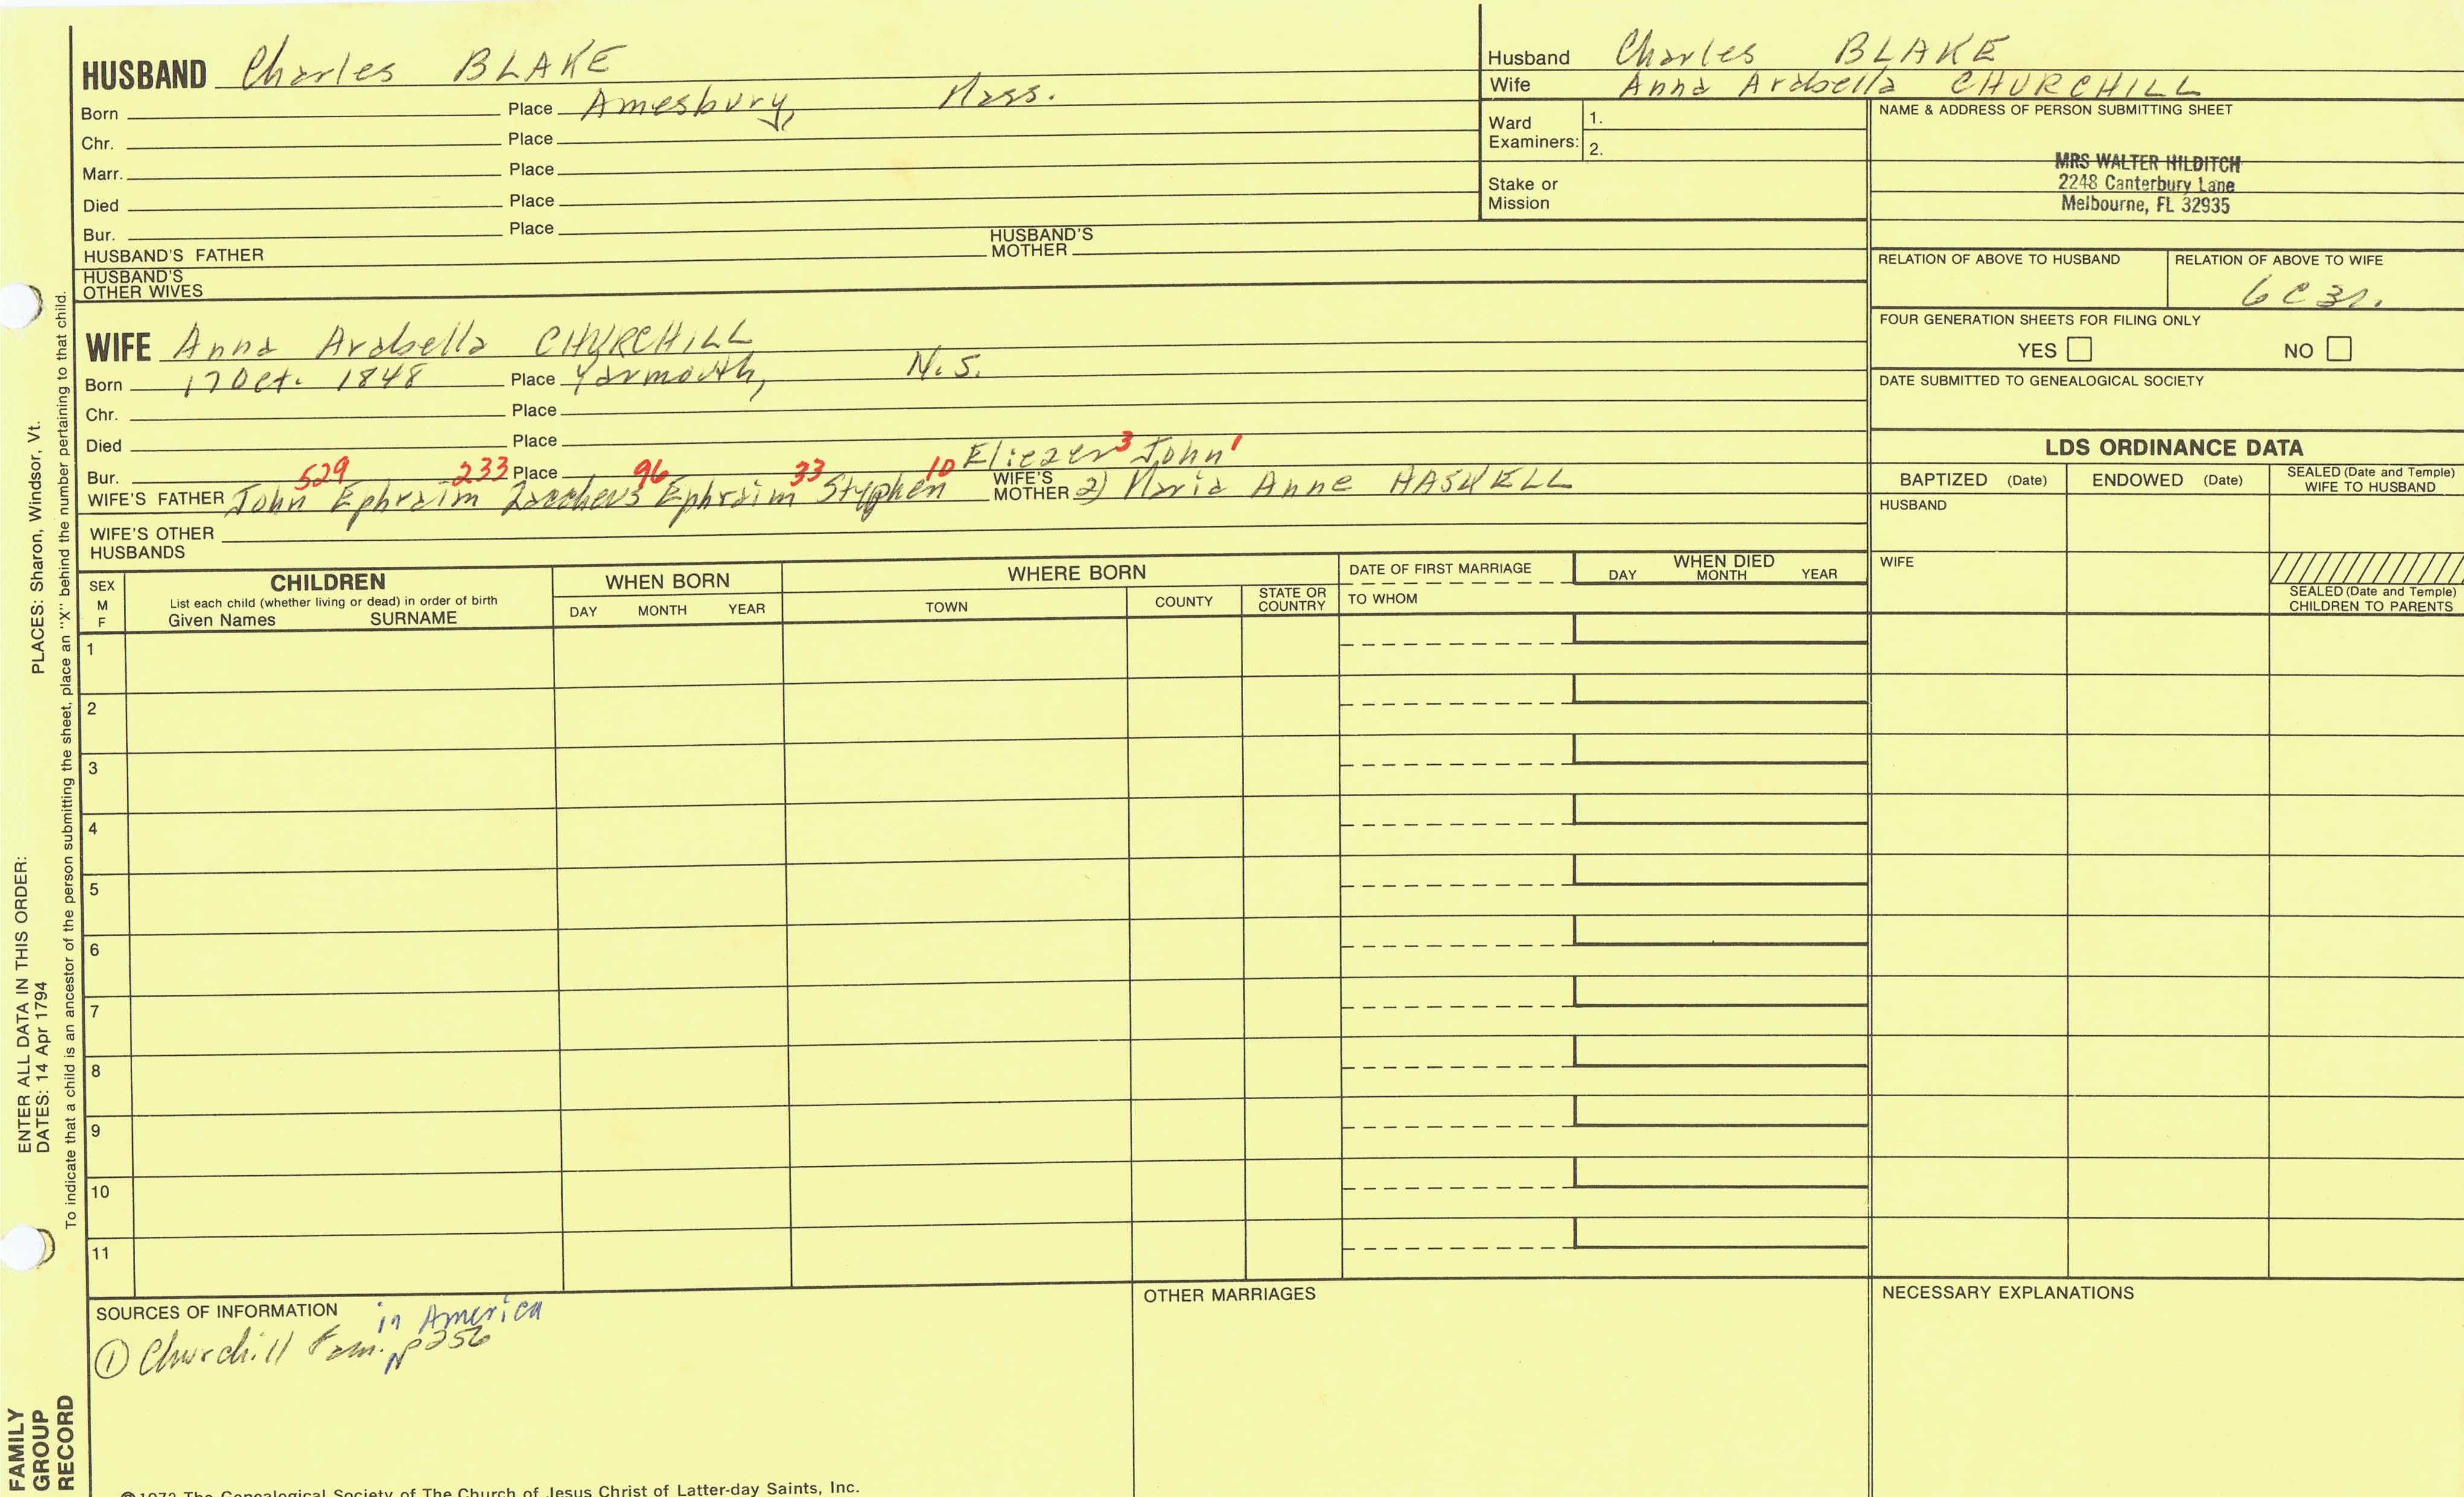 HUSBAND Charles BLAKE
Born Place Amesbury, Mass.
Chr. Place
Marr. Place
Died Place
Bur. Place
HUSBAND'S FATHER HUSBAND'S MOTHER
HUSBAND'S OTHER WIVES
Husband Charles BLAKE
Wife Anna Arabella CHURCHILL
Ward Examiners: 1.
2.
Stake or Mission
NAME & ADDRESS OF PERSON SUBMITTING SHEET
MRS WALTER HILDITCH
2248 Canterbury Lane
Melbourne, FL 32935
RELATION OF ABOVE TO HUSBAND RELATION OF ABOVE TO WIFE
6C3r.
FOUR GENERATION SHEETS FOR FILING ONLY
YES NO
DATE SUBMITTED TO GENEALOGICAL SOCIETY
WIFE Anna Arabella CHURCHILL
Born 17 Oct. 1848 Place Yarmouth, N.S.
Chr. Place
Died Place Eliezer 3 John 1
Bur. 529 233 Place 96 33 10
WIFE'S FATHER John Ephraim Zaccheus Ephraim Stephen WIFE'S MOTHER 2) Maria Anne HASKELL
WIFE'S OTHER HUSBANDS
LDS ORDINANCE DATA
BAPTIZED (Date) ENDOWED (Date) SEALED (Date and Temple) WIFE TO HUSBAND
HUSBAND
WIFE
SEALED (Date and Temple) CHILDREN TO PARENTS
SEX M F CHILDREN WHEN BORN WHERE BORN DATE OF FIRST MARRIAGE WHEN DIED
List each child (whether living or dead) in order of birth DAY MONTH YEAR TOWN COUNTY STATE OR COUNTRY TO WHOM DAY MONTH YEAR
Given Names SURNAME
1
2
3
4
5
6
7
8
9
10
11
SOURCES OF INFORMATION in America
① Churchill Fam. p256
OTHER MARRIAGES
NECESSARY EXPLANATIONS
©1972 The Genealogical Society of The Church of Jesus Christ of Latter-day Saints, Inc.
FAMILY GROUP RECORD
ENTER ALL DATA IN THIS ORDER:
DATES: 14 Apr 1794 PLACES: Sharon, Windsor, Vt.
To indicate that a child is an ancestor of the person submitting the sheet, place an "X" behind the number pertaining to that child.